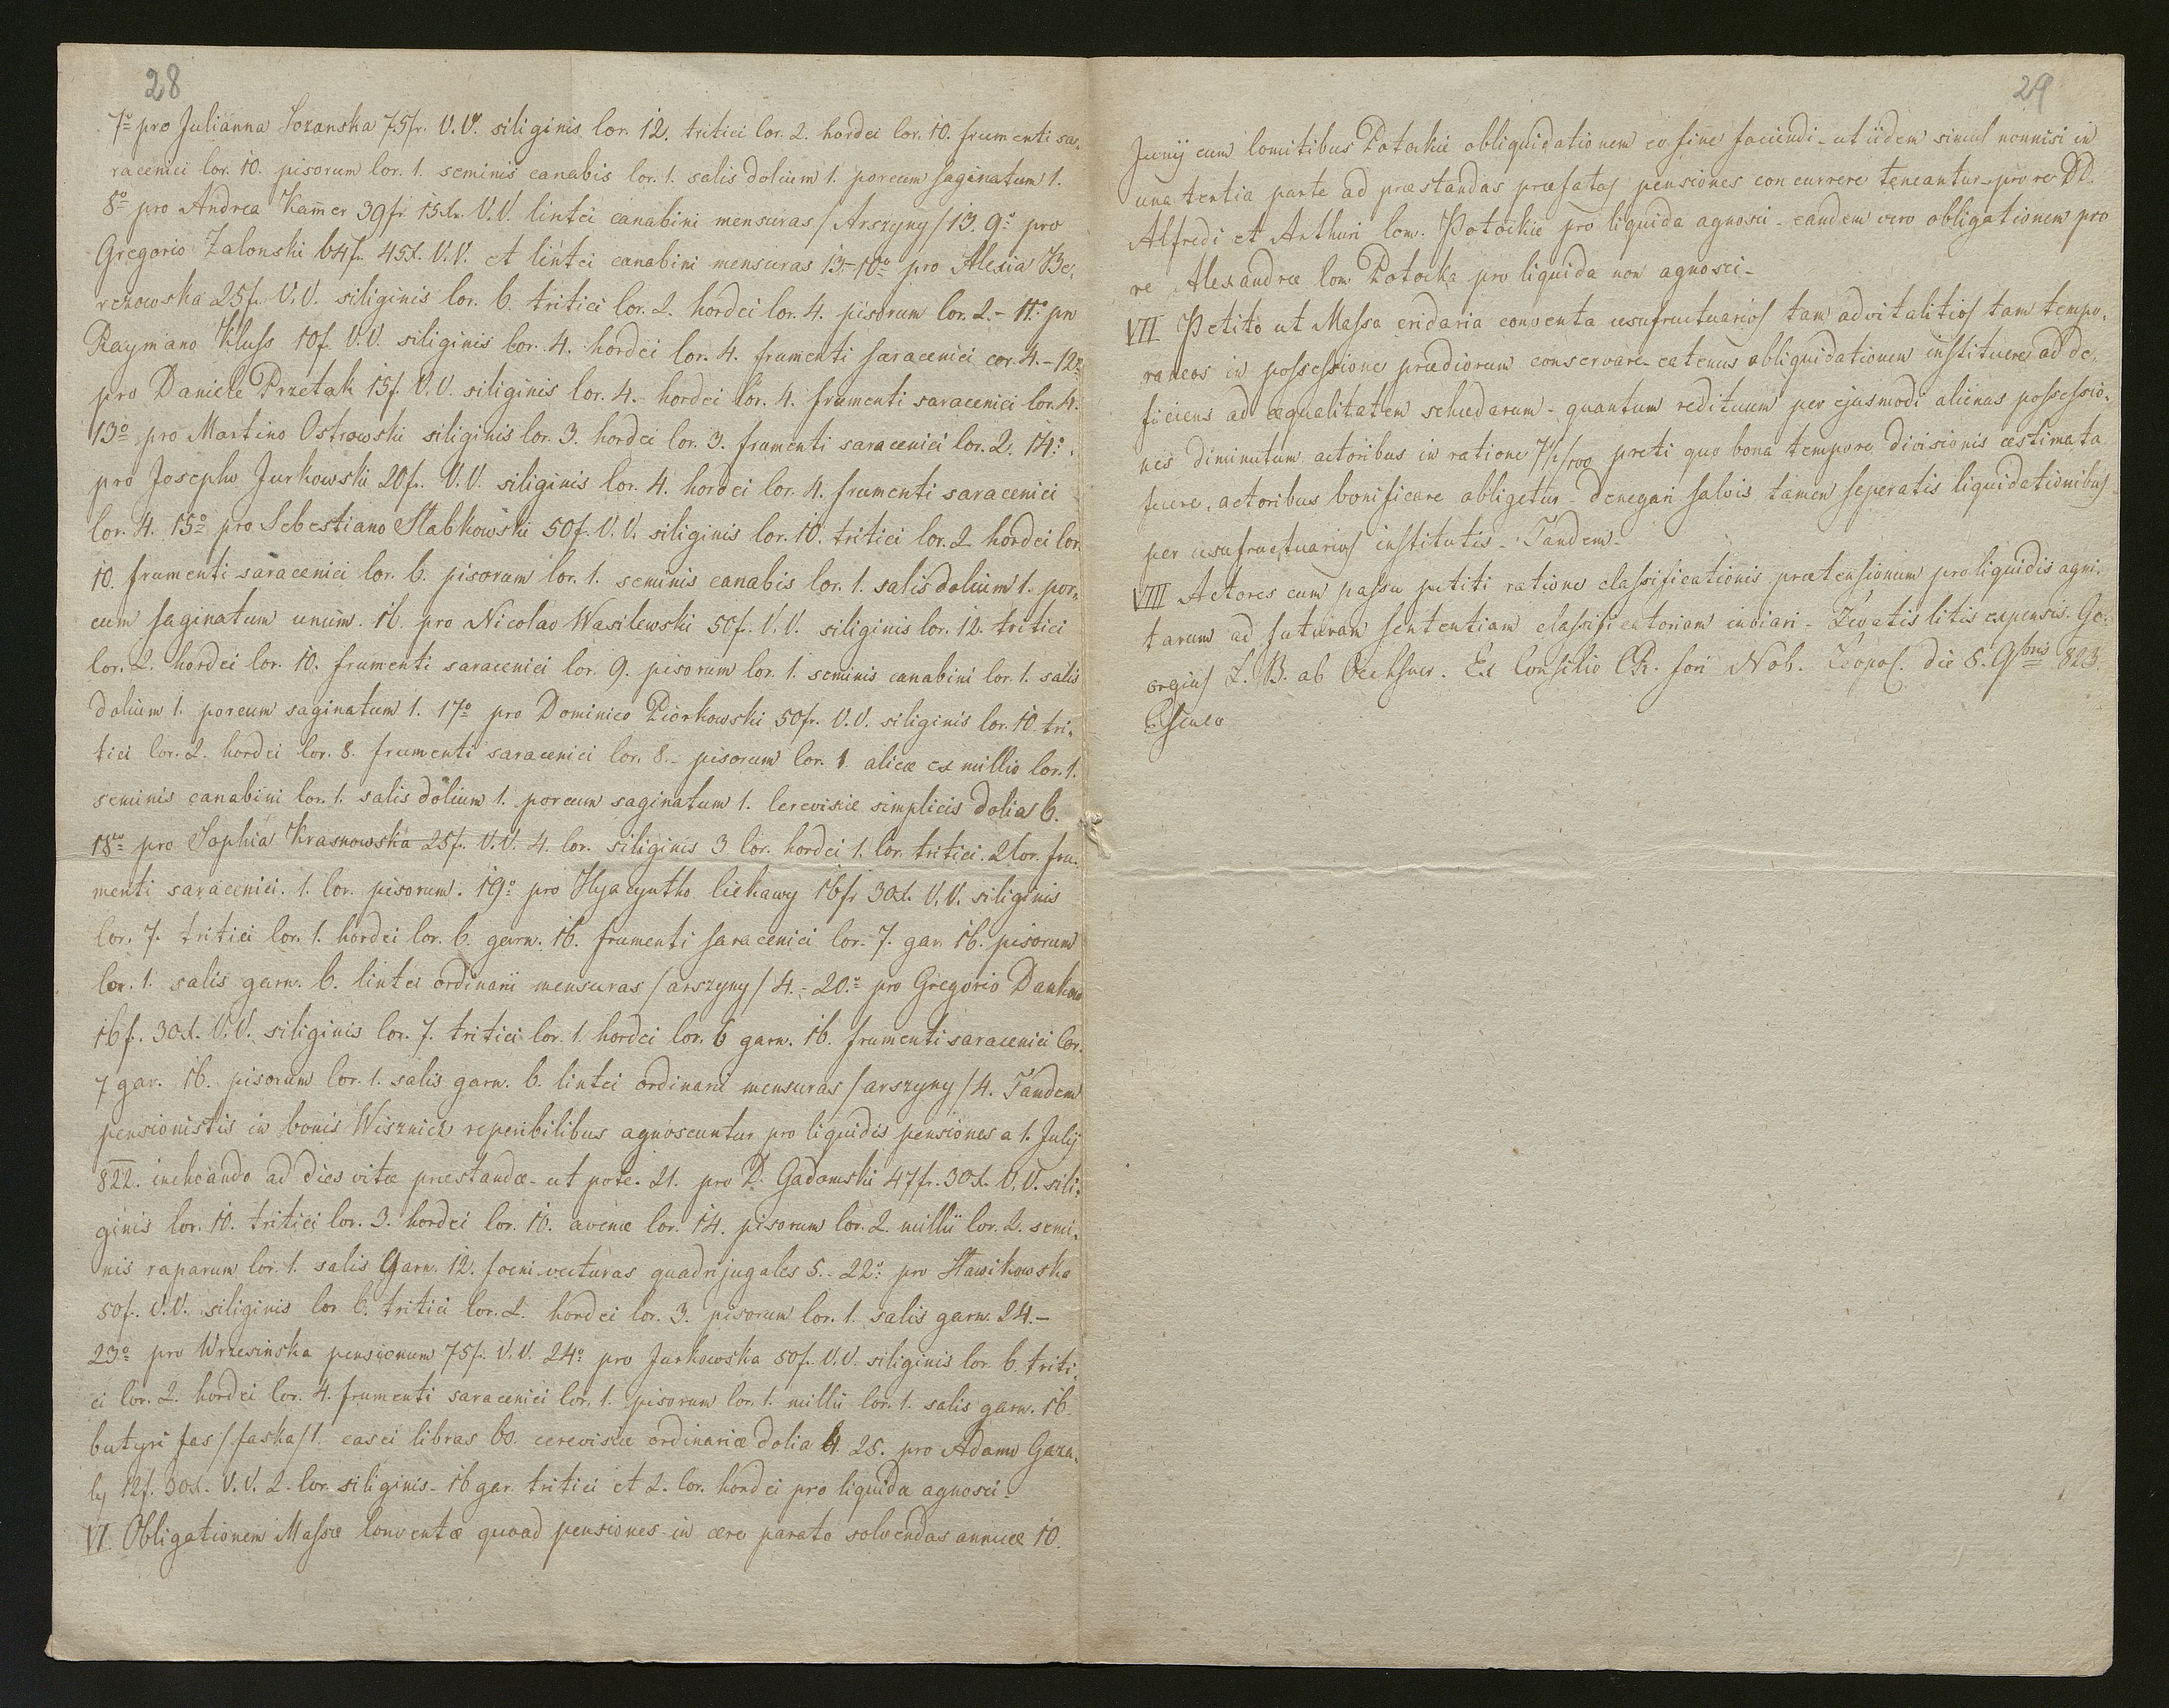 28
7º pro Julianna Sozanska 75fr. V.V. siliginis Cor. 12. tritici Cor. 2. hordei Cor. 10. frumenti sa-
racenici Cor. 10. pisorum Cor. 1. seminis canabis Cor. 1. salis dolium 1. porcum saginatum 1.
8º pro Andrea Kamer 39fr. 15Xr. V.V. lintei canabini mensuras /Arszyny/ 13. 9º pro
Gregorio Zalonski 64f. 45X. V.V. et lintei canabini mensuras 13.- 10º pro Alexia Be-
rezowska 25f. V.V. siliginis Cor. 6. tritici Cor. 2. hordei Cor. 4. pisorum Cor. 2.- 11º pro
Raymano Kluss 10f. V.V. siliginis Cor. 4. hordei Cor. 4. frumenti saracenici cor. 4.- 12º
pro Daniele Przetak 15f. V.V. siliginis Cor. 4.- hordei Cor. 4. frumenti saracenici Cor. 4.
13º pro Martino Ostrowski siliginis Cor. 3. hordei Cor. 3. frumenti saracenici Cor. 2. 14º
pro Josepho Jurkowski 20f. V.V. siliginis Cor. 4. hordei Cor. 4. frumenti saracenici
Cor. 4. 15º pro Sebestiano Slabkowski 50f. V.V. siliginis Cor. 10. tritici Cor. 2 hordei Cor.
10. frumenti saracenici Cor. 6. pisorum Cor. 1. seminis canabis Cor. 1. salis dolium 1. por-
cum saginatum unum. 16. pro Nicolao Wasilewski 50f. V.V. siliginis Cor. 12. tritici
Cor. 2. hordei Cor. 10. frumenti saracenici Cor. 9. pisorum Cor. 1. seminis canabini Cor. 1. salis
dolium 1. porcum saginatum 1. 17º pro Dominico Piorkowski 50fr. V.V. siliginis Cor. 10. tri-
tici Cor. 2. hordei Cor. 8. frumenti saracenici Cor. 8.- pisorum Cor. 1. alicæ ex millio Cor. 1.
seminis canabini Cor. 1. salis dolium 1. porcum saginatum 1. Cerevisiæ simplicis dolia 6.
18º pro Sophia Krasnowska 25f. V.V. 4. Cor. siliginis 3 Cor. hordei 1. Cor. tritici. 2 Cor. fru-
menti saracenici. 1. Cor. pisorum. 19º pro Hyacyntho Ciekawy 16fr 30X. V.V. siliginis
Cor. 7. tritici Cor. 1. hordei Cor. 6. garn. 16. frumenti saracenici Cor. 7. gar. 16. pisorum
Cor. 1. salis garn. 6. lintei ordinarii mensuras /arszyny/ 4.- 20º pro Gregorio Danków
16f. 30X. V.V. siliginis Cor. 7. tritici Cor. 1. hordei Cor. 6 garn. 16. frumenti saracenici Cor.
7 gar. 16. pisorum Cor. 1. salis garn. 6. lintei ordinarii mensuras /arszyny/ 4. Tandem
pensionistis in bonis Wisznicz reperibilibus agnoscuntur pro liquidis pensiones a 1. July
822. inchoando ad dies vitæ præstandæ- ut pote. 21. pro D. Gadomski 47fr. 30X. V.V. sili-
ginis Cor. 10. tritici Cor. 3. hordei Cor. 10. avenæ Cor. 14. pisorum Cor. 2. millii Cor. 2. semi-
nis raparum Cor. 1. salis Garn. 12. foeni vecturas quadrijugales 5.- 22º pro Slawikowska
50f. V.V. siliginis Cor 6. tritici Cor. 2. hordei Cor. 3. pisorum Cor. 1. salis garn. 24.-
23º pro Wrzesinska pensionum 75f. V.V. 24º pro Jurkowska 50f. V.V. siliginis Cor. 6. triti-
ci Cor. 2. hordei Cor. 4. frumenti saracenici Cor. 1. pisorum Cor. 1. millii Cor. 1. salis garn. 16.
butyri fas /faska/ 1. casei libras 60. cerevisiæ ordinariæ dolia 4. 25. pro Adamo Gaza-
ly 12f. 30X. V.V. 2. Cor. siliginis- 16 gar. tritici et 2. Cor. hordei pro liquida agnosci-
VI Obligationem Massæ Conventæ quoad pensiones in ære parato solvendas annuæ 10.
29
Junij cum Comitibus Potockie obliquidationem eo fine faciendi- ut iidem simul nonnisi in
una tertia parte ad præstandas præfatas pensiones concurrere teneantur- pro re DD.
Alfredi et Arthuri Com. Potockie pro liquida agnosci- eandem vero obligationem pro
re Alexandræ Com Potocka pro liquida non agnosci-
VII Petito ut Massa cridaria conventa usufructuarios tam advitalitios tam tempo-
raneos in possessione prædiorum conservare eatenus obliquidationem instituere ad de-
ficiens ad æqualitatem schedarum- quantum redituum per ejusmodi alienas possessio-
nes diminutum actoribus in ratione 7½/100 preti quo bona tempore divisionis æstimata
fuere, actoribus bonificare obligetur- denegari salvis tamen seperatis liquidationibus
per usufructuarios institutis- Tandem-
VIII Actores cum passu petiti ratione classificationis prætensionum pro liquidis agni-
tarum ad futuram sententiam classificatoriam inviari- Levatis litis expensis. Ge-
orgius L. B. ab Oechsner. Ex Consilio CR. fori Nob. Leopol. die 5. 9bris 823.